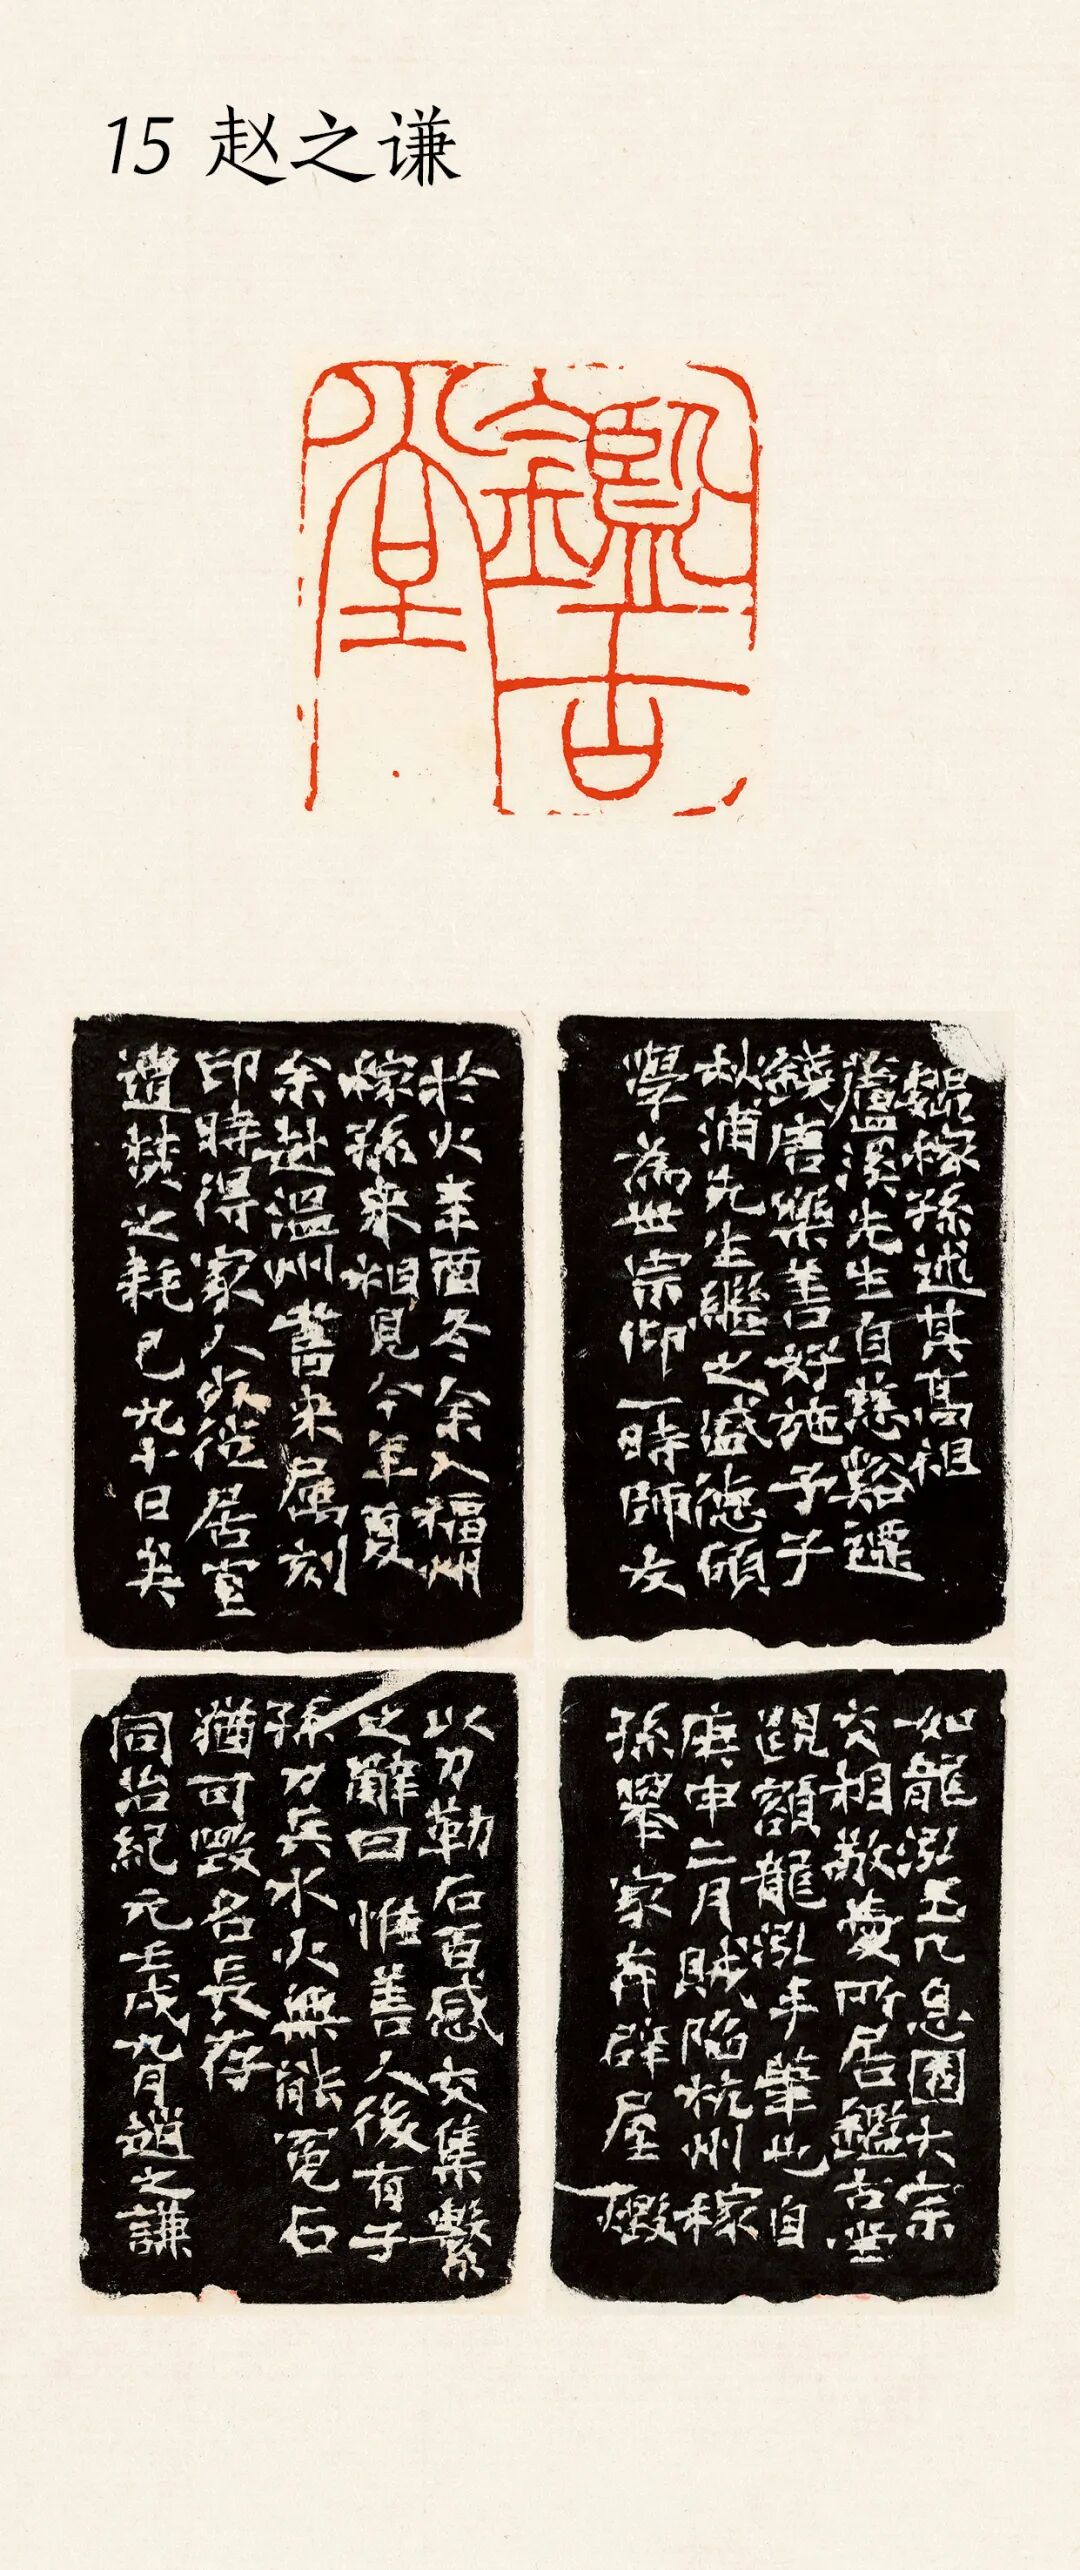 15 赵之谦
鑑古堂
魏稼孫述其高祖
蘆溪先生自慈谿遷
錢唐樂善好施予子
秋浦先生繼之盛德碩
學為世宗仰一時師友
如龍泓玉几息園大宗
交相敬愛所居鑑古堂
觀額龍泓手筆也自
庚申二月賊陷杭州稼
孫舉家奔辟屋燬
於火辛酉冬余入福州
稼孫來相見今年夏
余赴溫州書來属刻
印時得家人發從居室
遭焚之耗已九十日矣
以刀勒石百感交集繫
之辭曰惟善人後有子
孫刀兵水火無能冤石
猶可毀名長存
同治紀元壬戌九月趙之謙